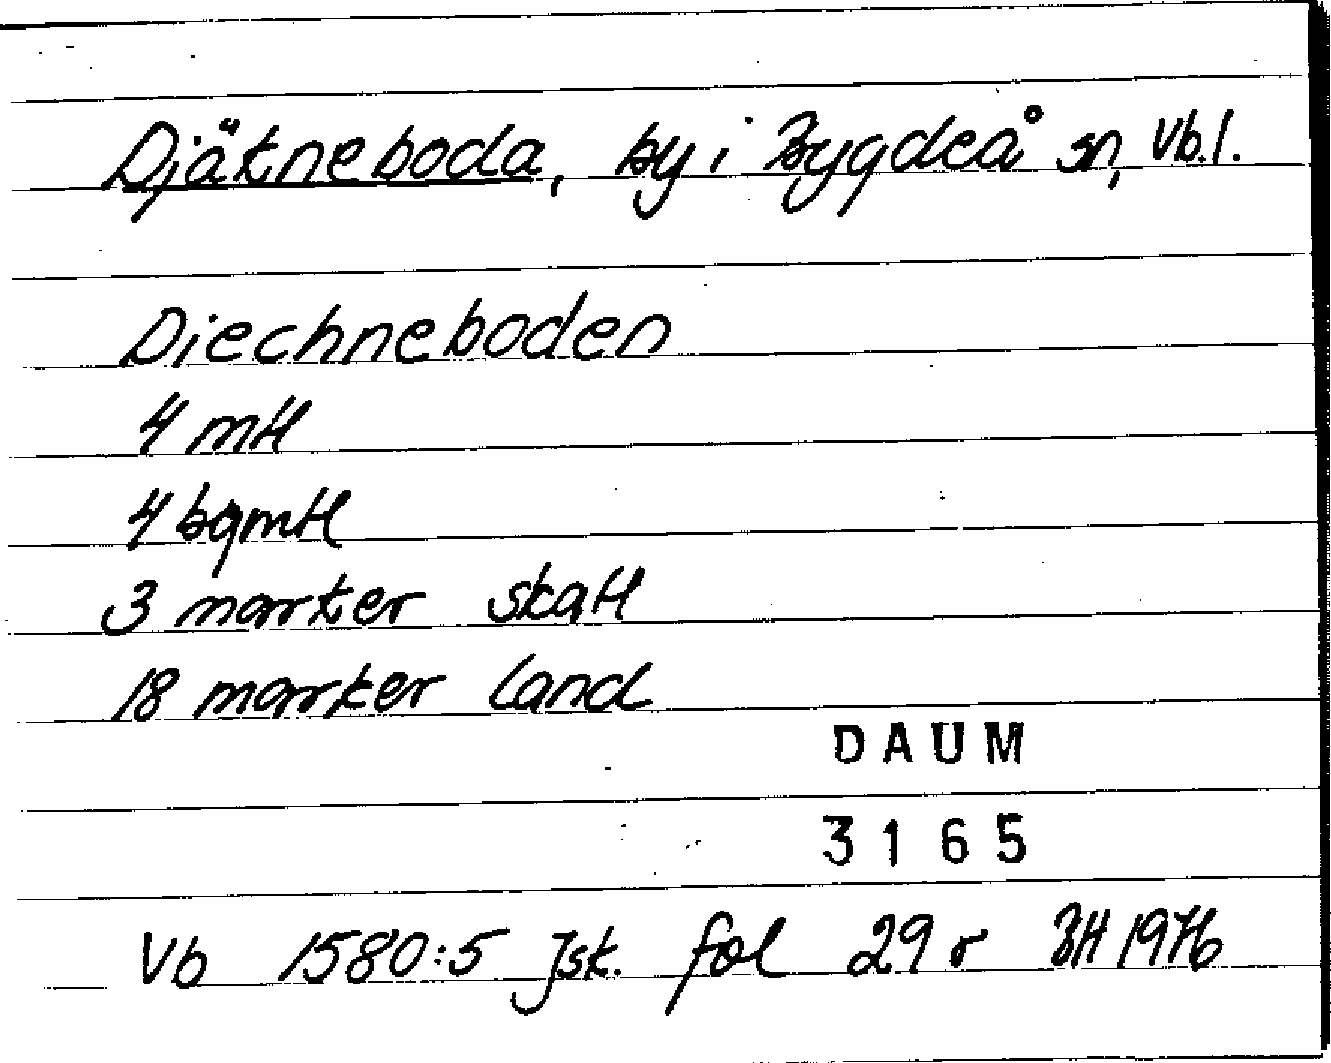 Djäkneboda, by i Bygdeå sn, Vb.l.
Diechneboden
4 mtl
4 bgmtl
3 marker skatt
18 marker land
DAUM
3165
Vb 1580:5 Jsk. fol 29 r BH 1976